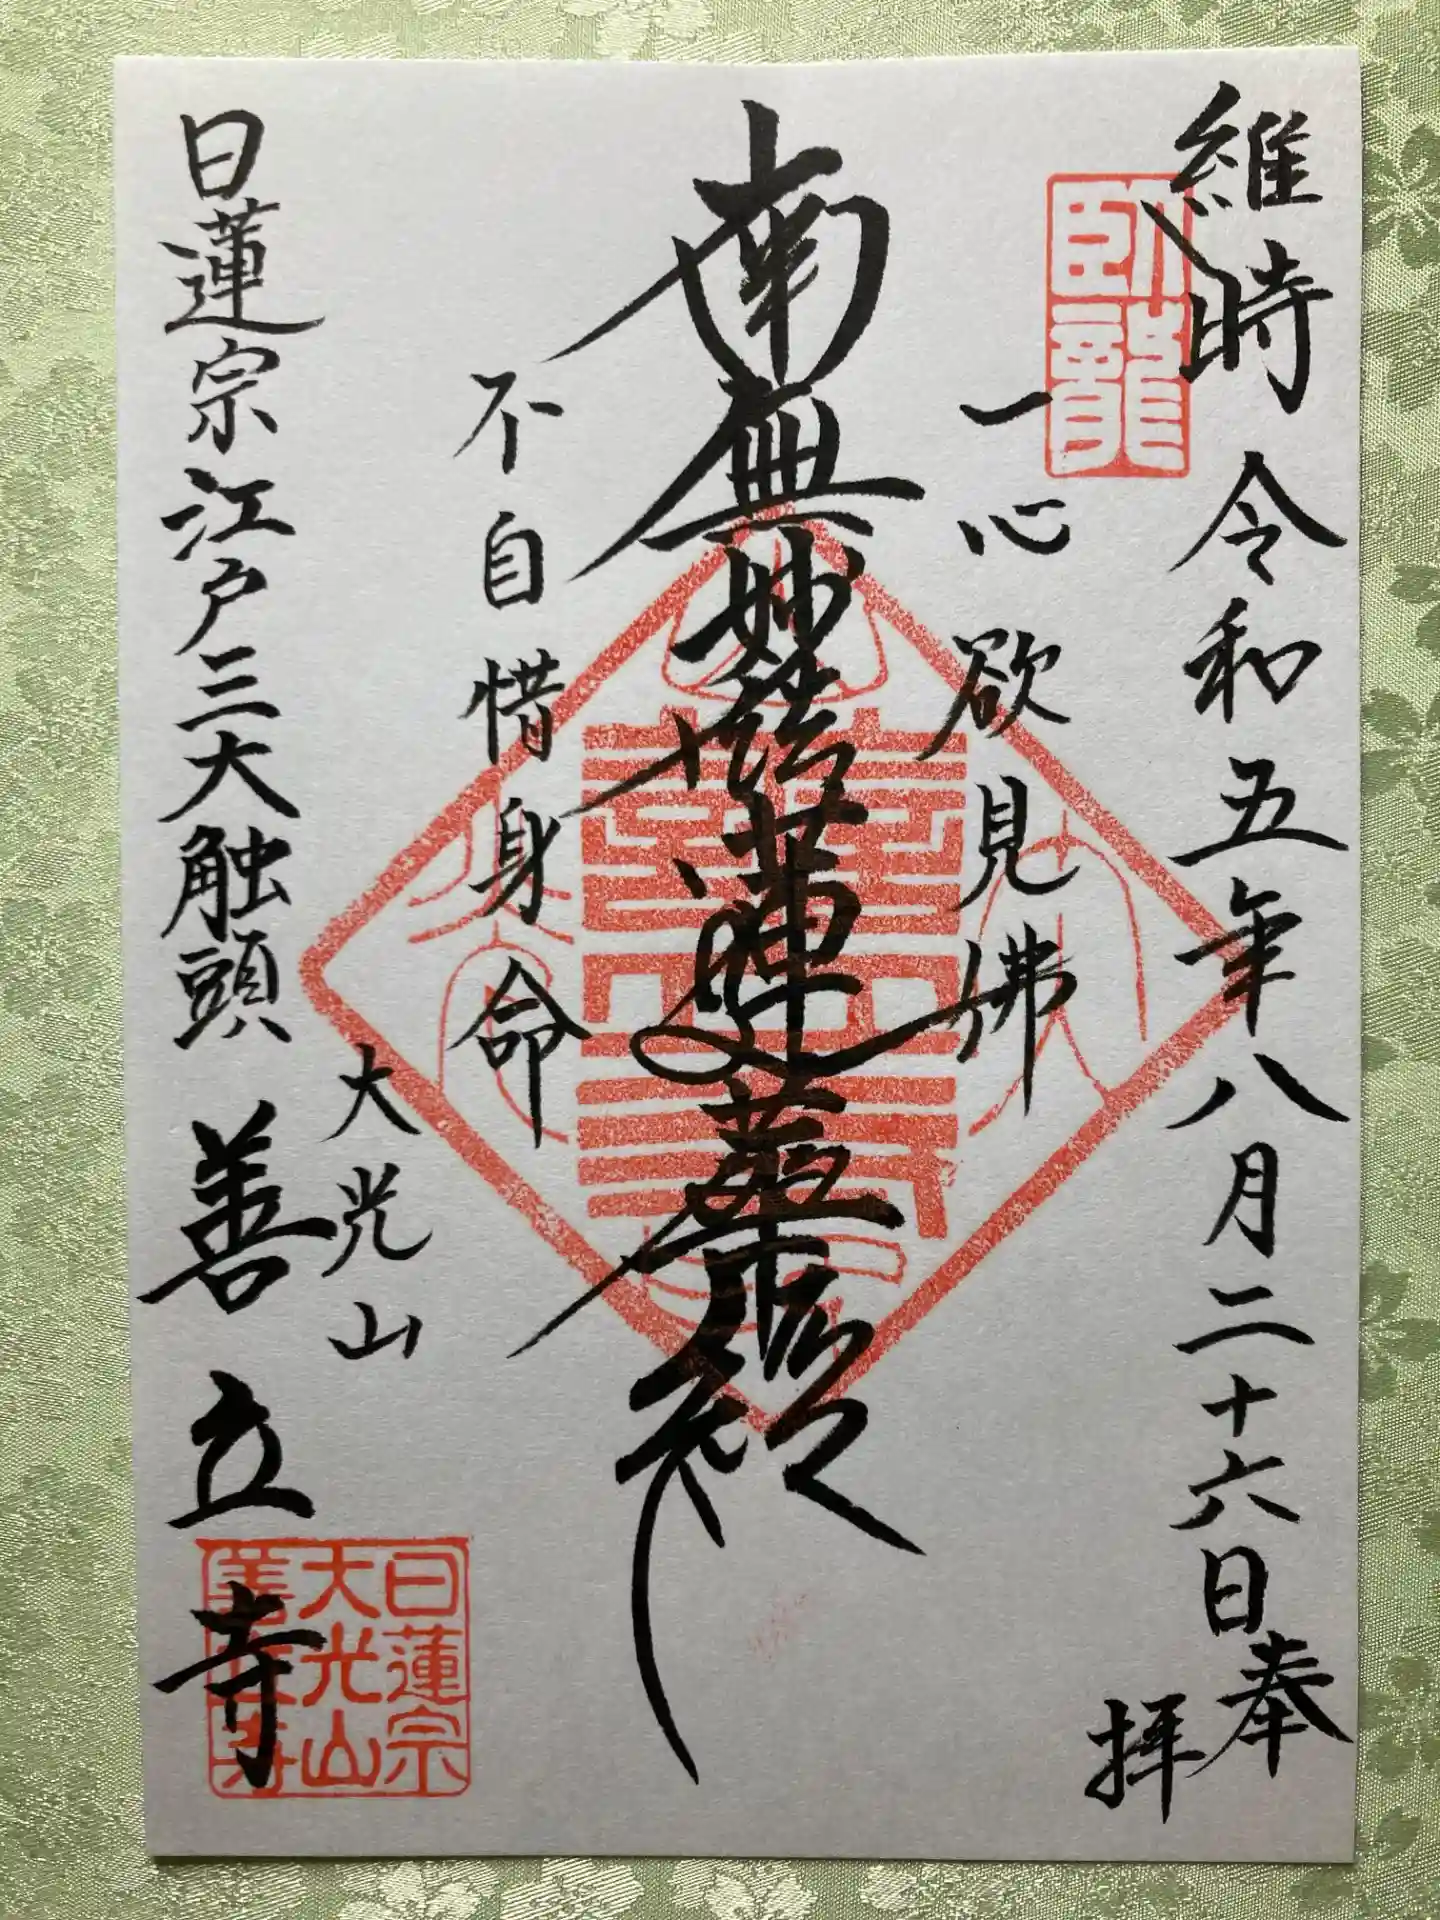 維時 令和五年八月二十六日 奉拝
臥龍
一心欲見佛
南無妙法蓮華経
不自惜身命
大光山
日蓮宗江戸三大触頭 善立寺
日蓮宗
大光山
善立寺